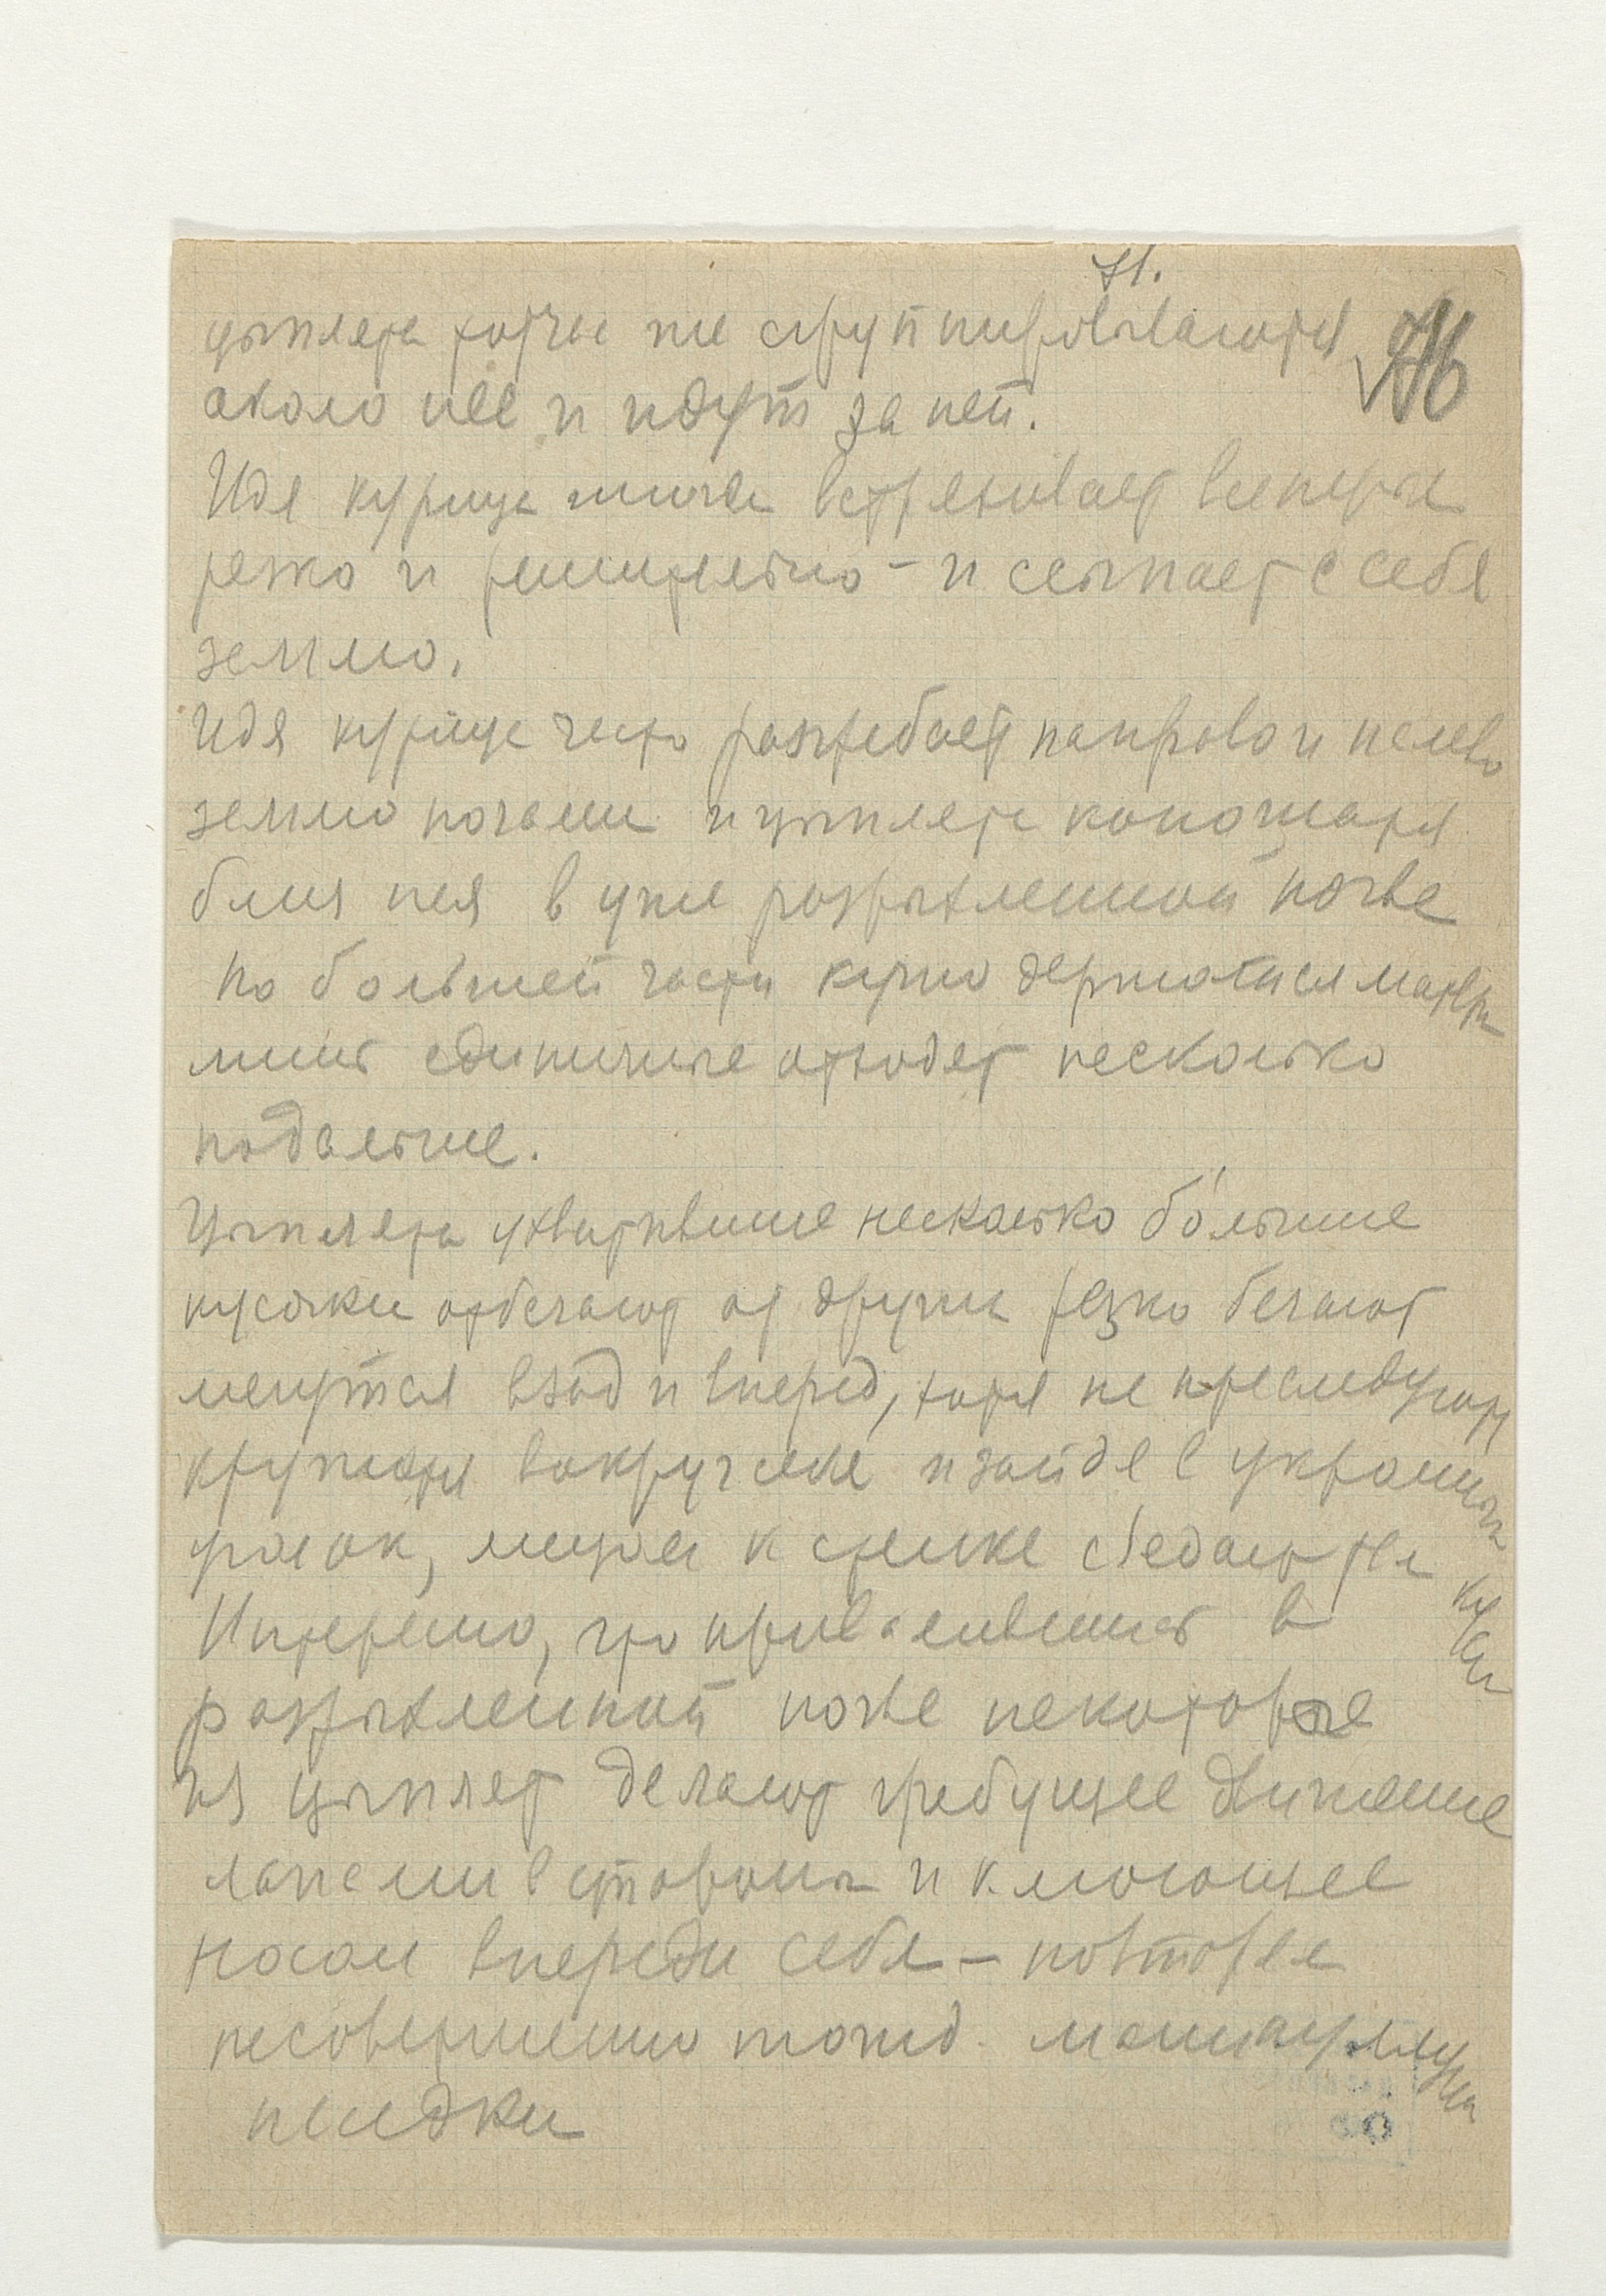 71.
цыплята тотчас же сгруппировываются
около нее и идут за ней.
Идя курица иногда встряхивает все перья
резко и решительно - и ссыпает с себя
землю.
Идя курица часто разгребает направо и налево
землю ногами и цыплята копошатся
близ нея в уже разрыхленной почве
По большей части кучно держаться матери
лишь единичные отходят несколько
подальше.
Цыплята ухватившие несколько бо́льшие
кусочки отбегают от других резко бегают
мечутся взад и вперед, хотя не преследуют
кружатся вокруг себя и зайдя в укромный
уголок, лицом к стенке съедают
куски
Интересно, что
в
разрыхленной почве некоторые
из цыплят делают гребущее движение
лапами в стороны и клюющее
носом впереди себя — повторяя
несовершенно
наседки